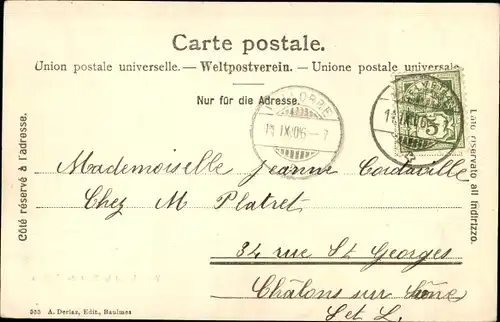 Carte postale.
Union postale universelle. — Weltpostverein. — Unione postale universale
Nur für die Adresse.
Côté réservé à l'adresse.
Lato riservato all indirizzo.
11 IX 06 — 7
5
Mademoiselle Jeanne
Chez M Platret
34 rue St Georges
Châlons sur Saône
S et L.
355 A. Deriaz, Edit., Baulmes